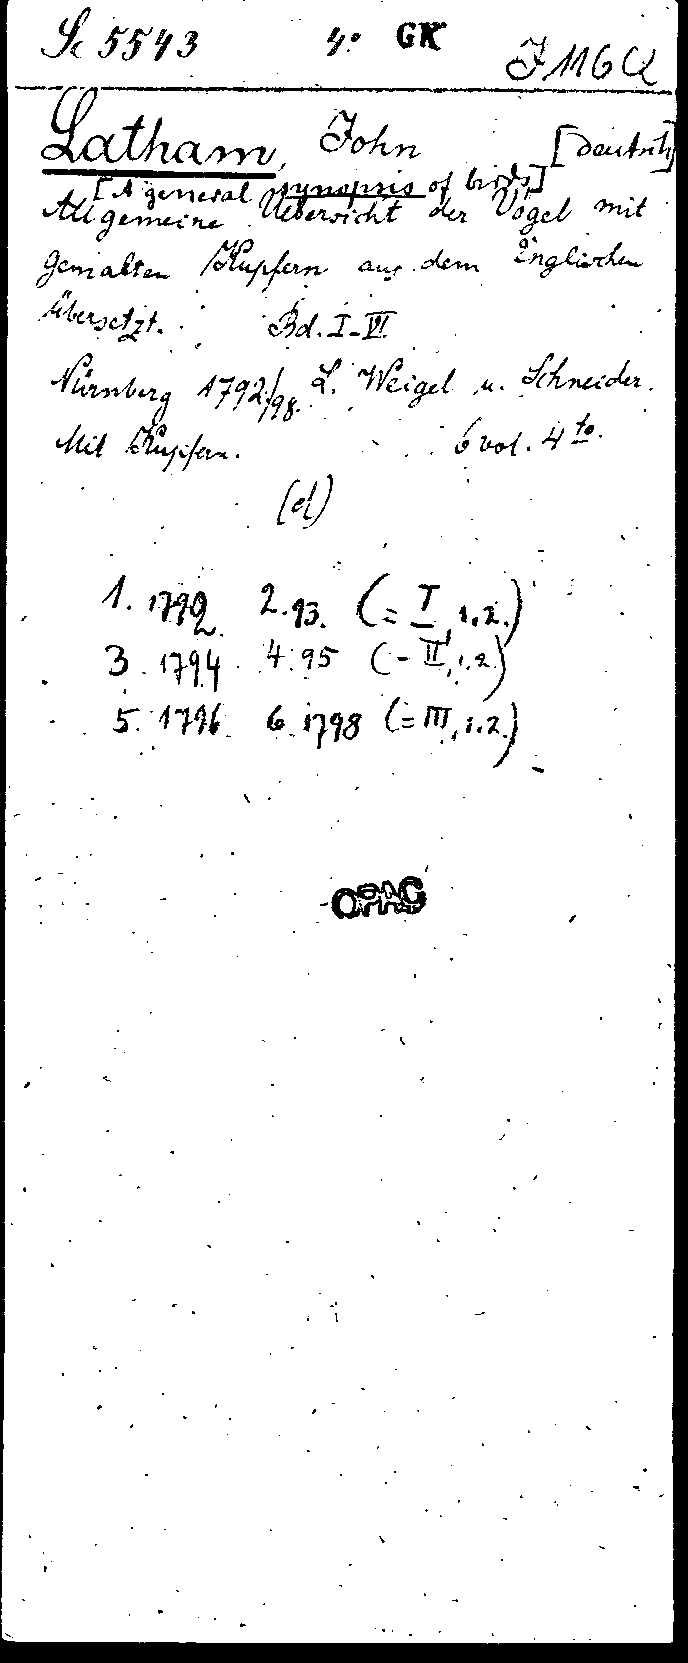 Sc 5543 4° GK J 116 Q
Latham, John [deutsch]
[A general synopsis of birds]
Allgemeine Uebersicht der Vögel mit
gemalten Kupfern aus dem Englischen
übersetzt. Bd. I-VI
Nürnberg 1792/98. L. Weigel u. Schneider.
Mit Kupfern. 6 vol. 4to.
(d)
1. 1792 2. 93. (= I, 1.2.)
3. 1794 4. 95 (- II, 1.2)
5. 1796 6. 1798 (= III, 1.2.)
OPAC